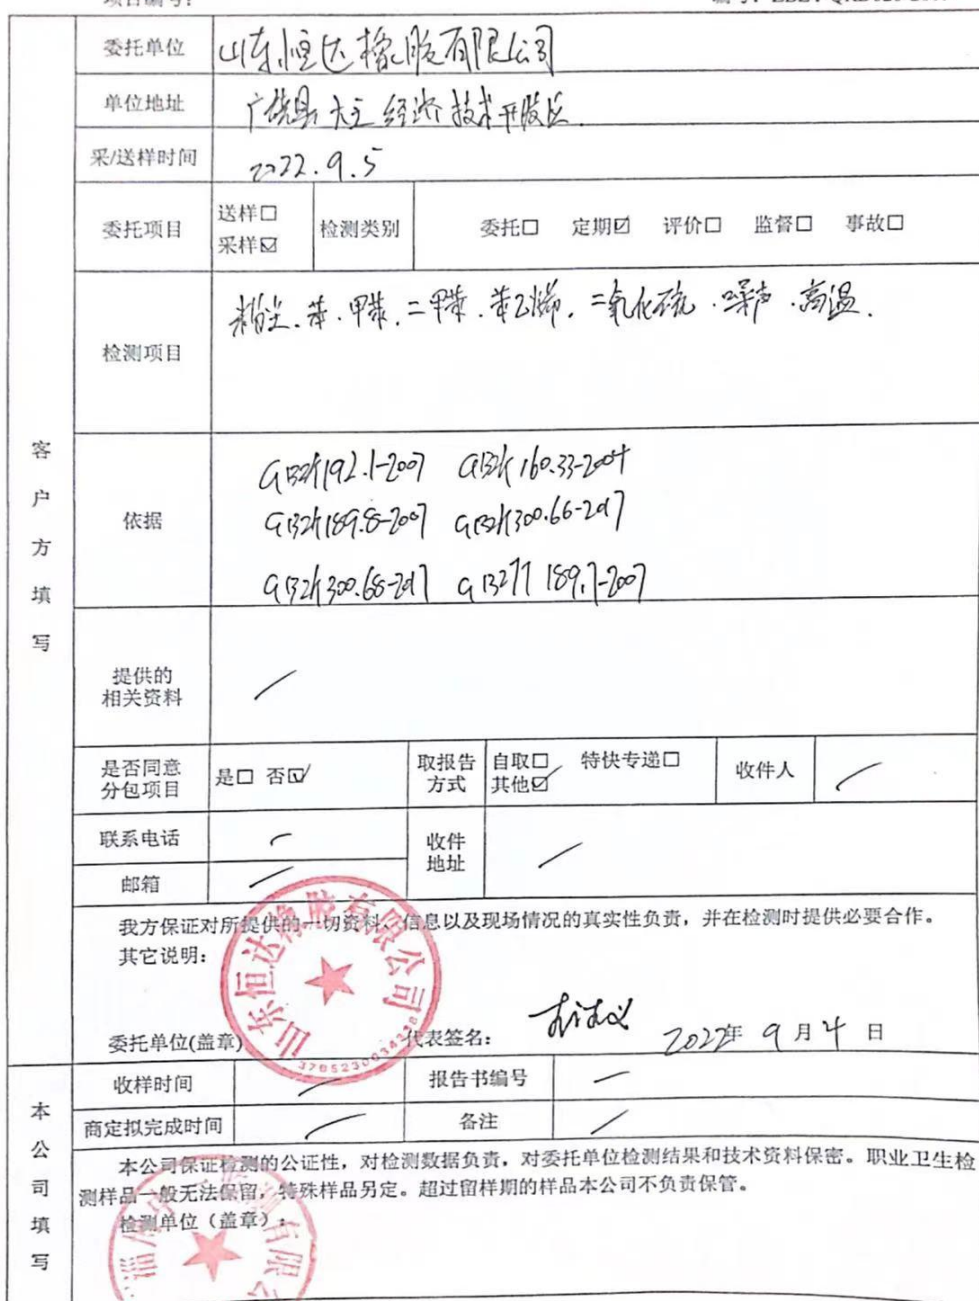 委托单位 山东恒达橡胶有限公司
单位地址 广饶县大王经济技术开发区
采/送样时间 2022.9.5
委托项目 送样□ 采样☑ 检测类别 委托□ 定期☑ 评价□ 监督□ 事故□
检测项目 粉尘、苯、甲苯、二甲苯、苯乙烯、二氧化硫、噪声、高温.
客户方填写
依据
GBZ/T192.1-2007 GBZ/T160.33-2004
GBZ/T189.8-2007 GBZ/T300.66-2017
GBZ/T300.68-2017 GBZ/T189.7-2007
提供的
相关资料 /
是否同意
分包项目 是□ 否☑ 取报告
方式 自取□ 特快专递□
其他☑ 收件人 /
联系电话 / 收件
地址 /
邮箱 /
我方保证对所提供的一切资料、信息以及现场情况的真实性负责，并在检测时提供必要合作。
其它说明：
山东恒达橡胶有限公司
委托单位(盖章) 代表签名： 2022年 9 月 4 日
收样时间 / 报告书编号 /
商定拟完成时间 / 备注 /
本公司填写
本公司保证检测的公证性，对检测数据负责，对委托单位检测结果和技术资料保密。职业卫生检
测样品一般无法保留，特殊样品另定。超过留样期的样品本公司不负责保管。
检测单位（盖章）：